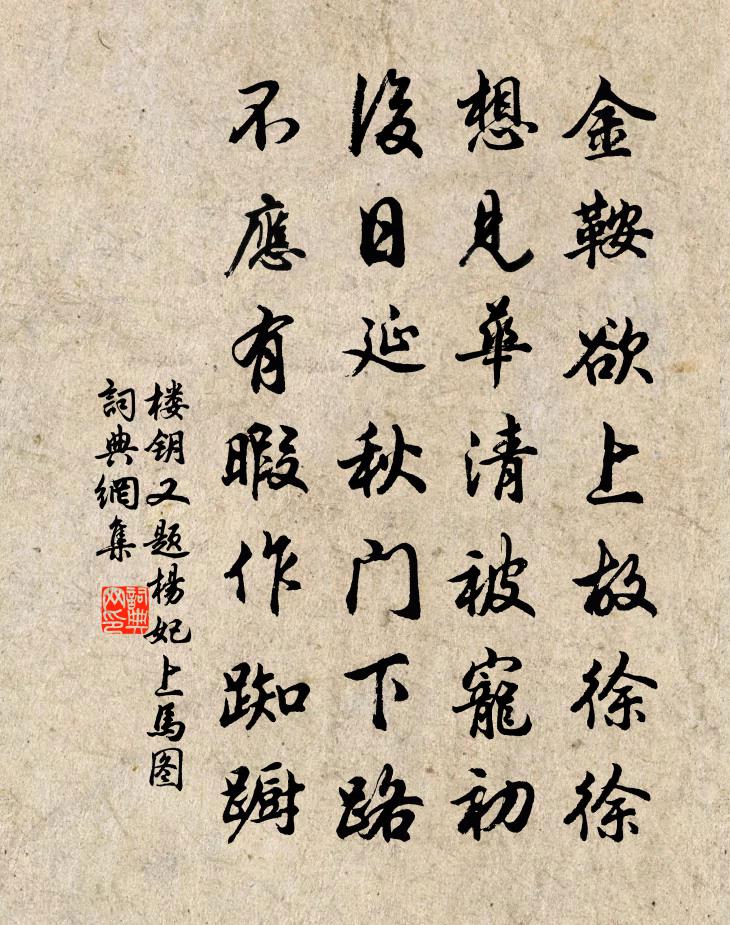 金鞍欲上故徐徐
想見華清被寵初
後日延秋门下路
不應有暇作踟蹰
楼钥又题楊妃上馬图
詞典網集
詞典网印